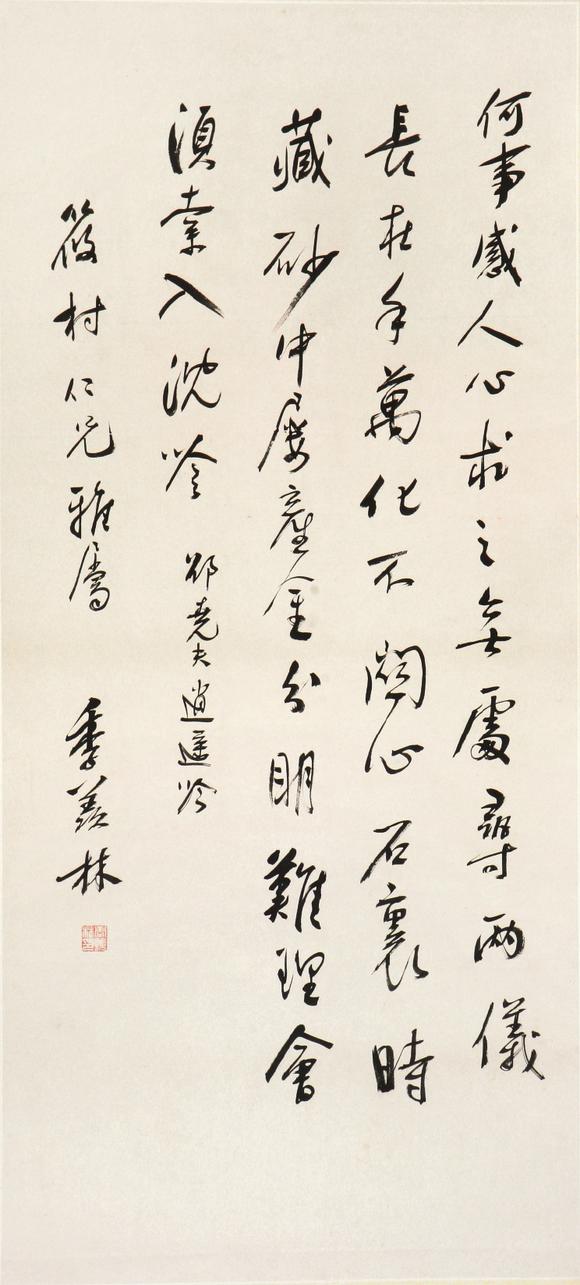 何事感人心求之無處尋兩儀
長在手萬化不關心石裏時
藏砂中屢產金分明難理會
須索入沈吟 邵堯夫逍遙吟
筱村仁兄雅屬 季羨林